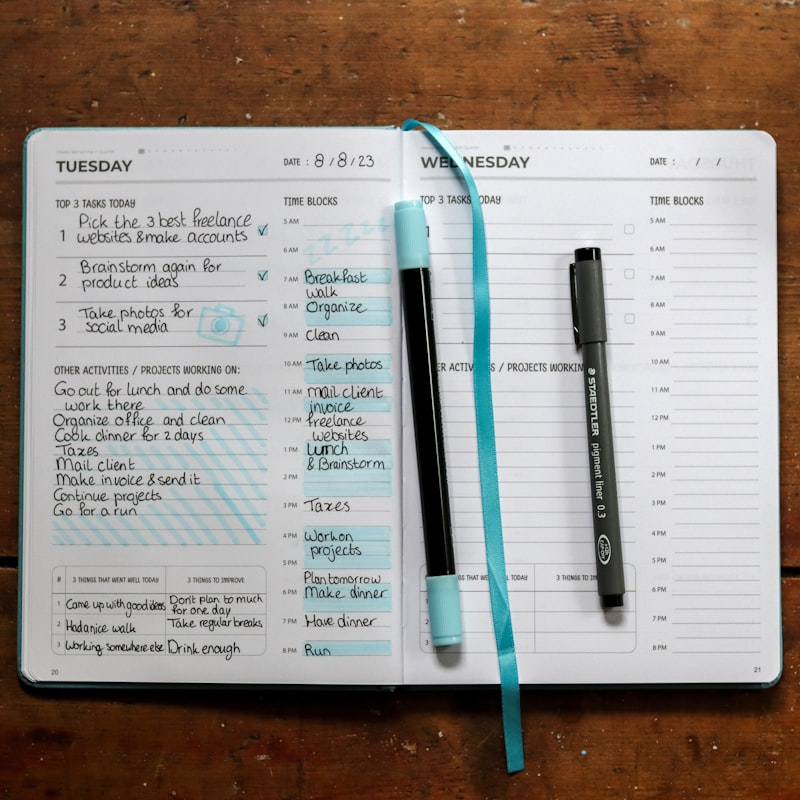 TUESDAY
DATE : 8/8/23
TOP 3 TASKS TODAY
1 Pick the 3 best freelance
websites & make accounts
2 Brainstorm again for
product ideas
3 Take photos for
social media
OTHER ACTIVITIES / PROJECTS WORKING ON:
Go out for lunch and do some
work there
Organize office and clean
Cook dinner for 2 days
Taxes
Mail client
Make invoice & send it
Continue projects
Go for a run
# 3 THINGS THAT WENT WELL TODAY 3 THINGS TO IMPROVE
1 Came up with good ideas Don't plan to much
for one day
2 Had a nice walk Take regular breaks
3 Working somewhere else Drink enough
20
TIME BLOCKS
5 AM
ZZZZZ
6 AM
7 AM Breakfast
walk
8 AM Organize
9 AM Clean
10 AM Take photos
11 AM mail client
invoice
12 PM freelance
websites
1 PM Lunch
& Brainstorm
2 PM
3 PM Taxes
4 PM Work on
projects
5 PM
Plan tomorrow
6 PM Make dinner
7 PM Have dinner
8 PM Run
WEDNESDAY
DATE : / /
TOP 3 TASKS TODAY
1
ER ACTIVITIES / PROJECTS WORKIN
THINGS THAT WENT WELL TODAY 3 THINGS TO IM
1
2
3
TIME BLOCKS
5 AM
6 AM
7 AM
8 AM
9 AM
10 AM
11 AM
12 PM
1 PM
2 PM
3 PM
4 PM
5 PM
6 PM
7 PM
8 PM
21
STAEDTLER
pigment liner 0.3